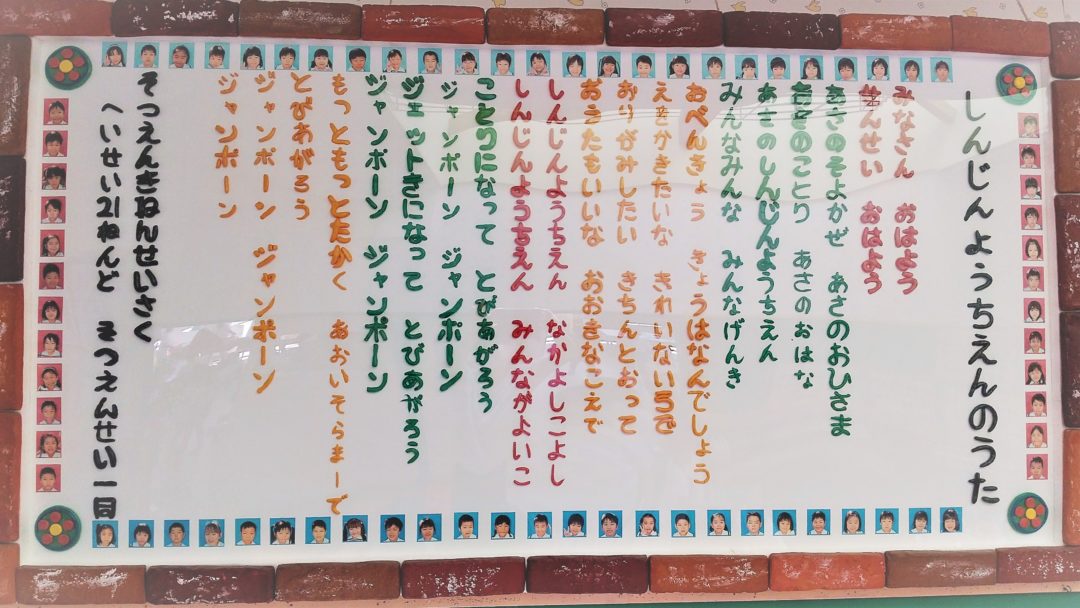 しんじんようちえんのうた
みなさん　おはよう
せんせい　おはよう
あさのそよかぜ　あさのおひさま
あさのことり　あさのおはな
あさのしんじんようちえん
みんなみんな　みんなげんき
おべんきょう　きょうはなんでしょう
えをかきたいな　きれいないろで
おりがみしたい　きちんとおって
おうたもいいな　おおきなこえで
しんじんようちえん　なかよしこよし
しんじんようちえん　みんながよいこ
ことりになって　とびあがろう
ジャンボーン　ジャンボーン
ジェットきになって　とびあがろう
ジャンボーン　ジャンボーン
もっともっとたかく　あおいそらまーで
とびあがろう
ジャンボーン　ジャンボーン
ジャンボーン
そつえんきねんせいさく
へいせい21ねんど　そつえんせい一同